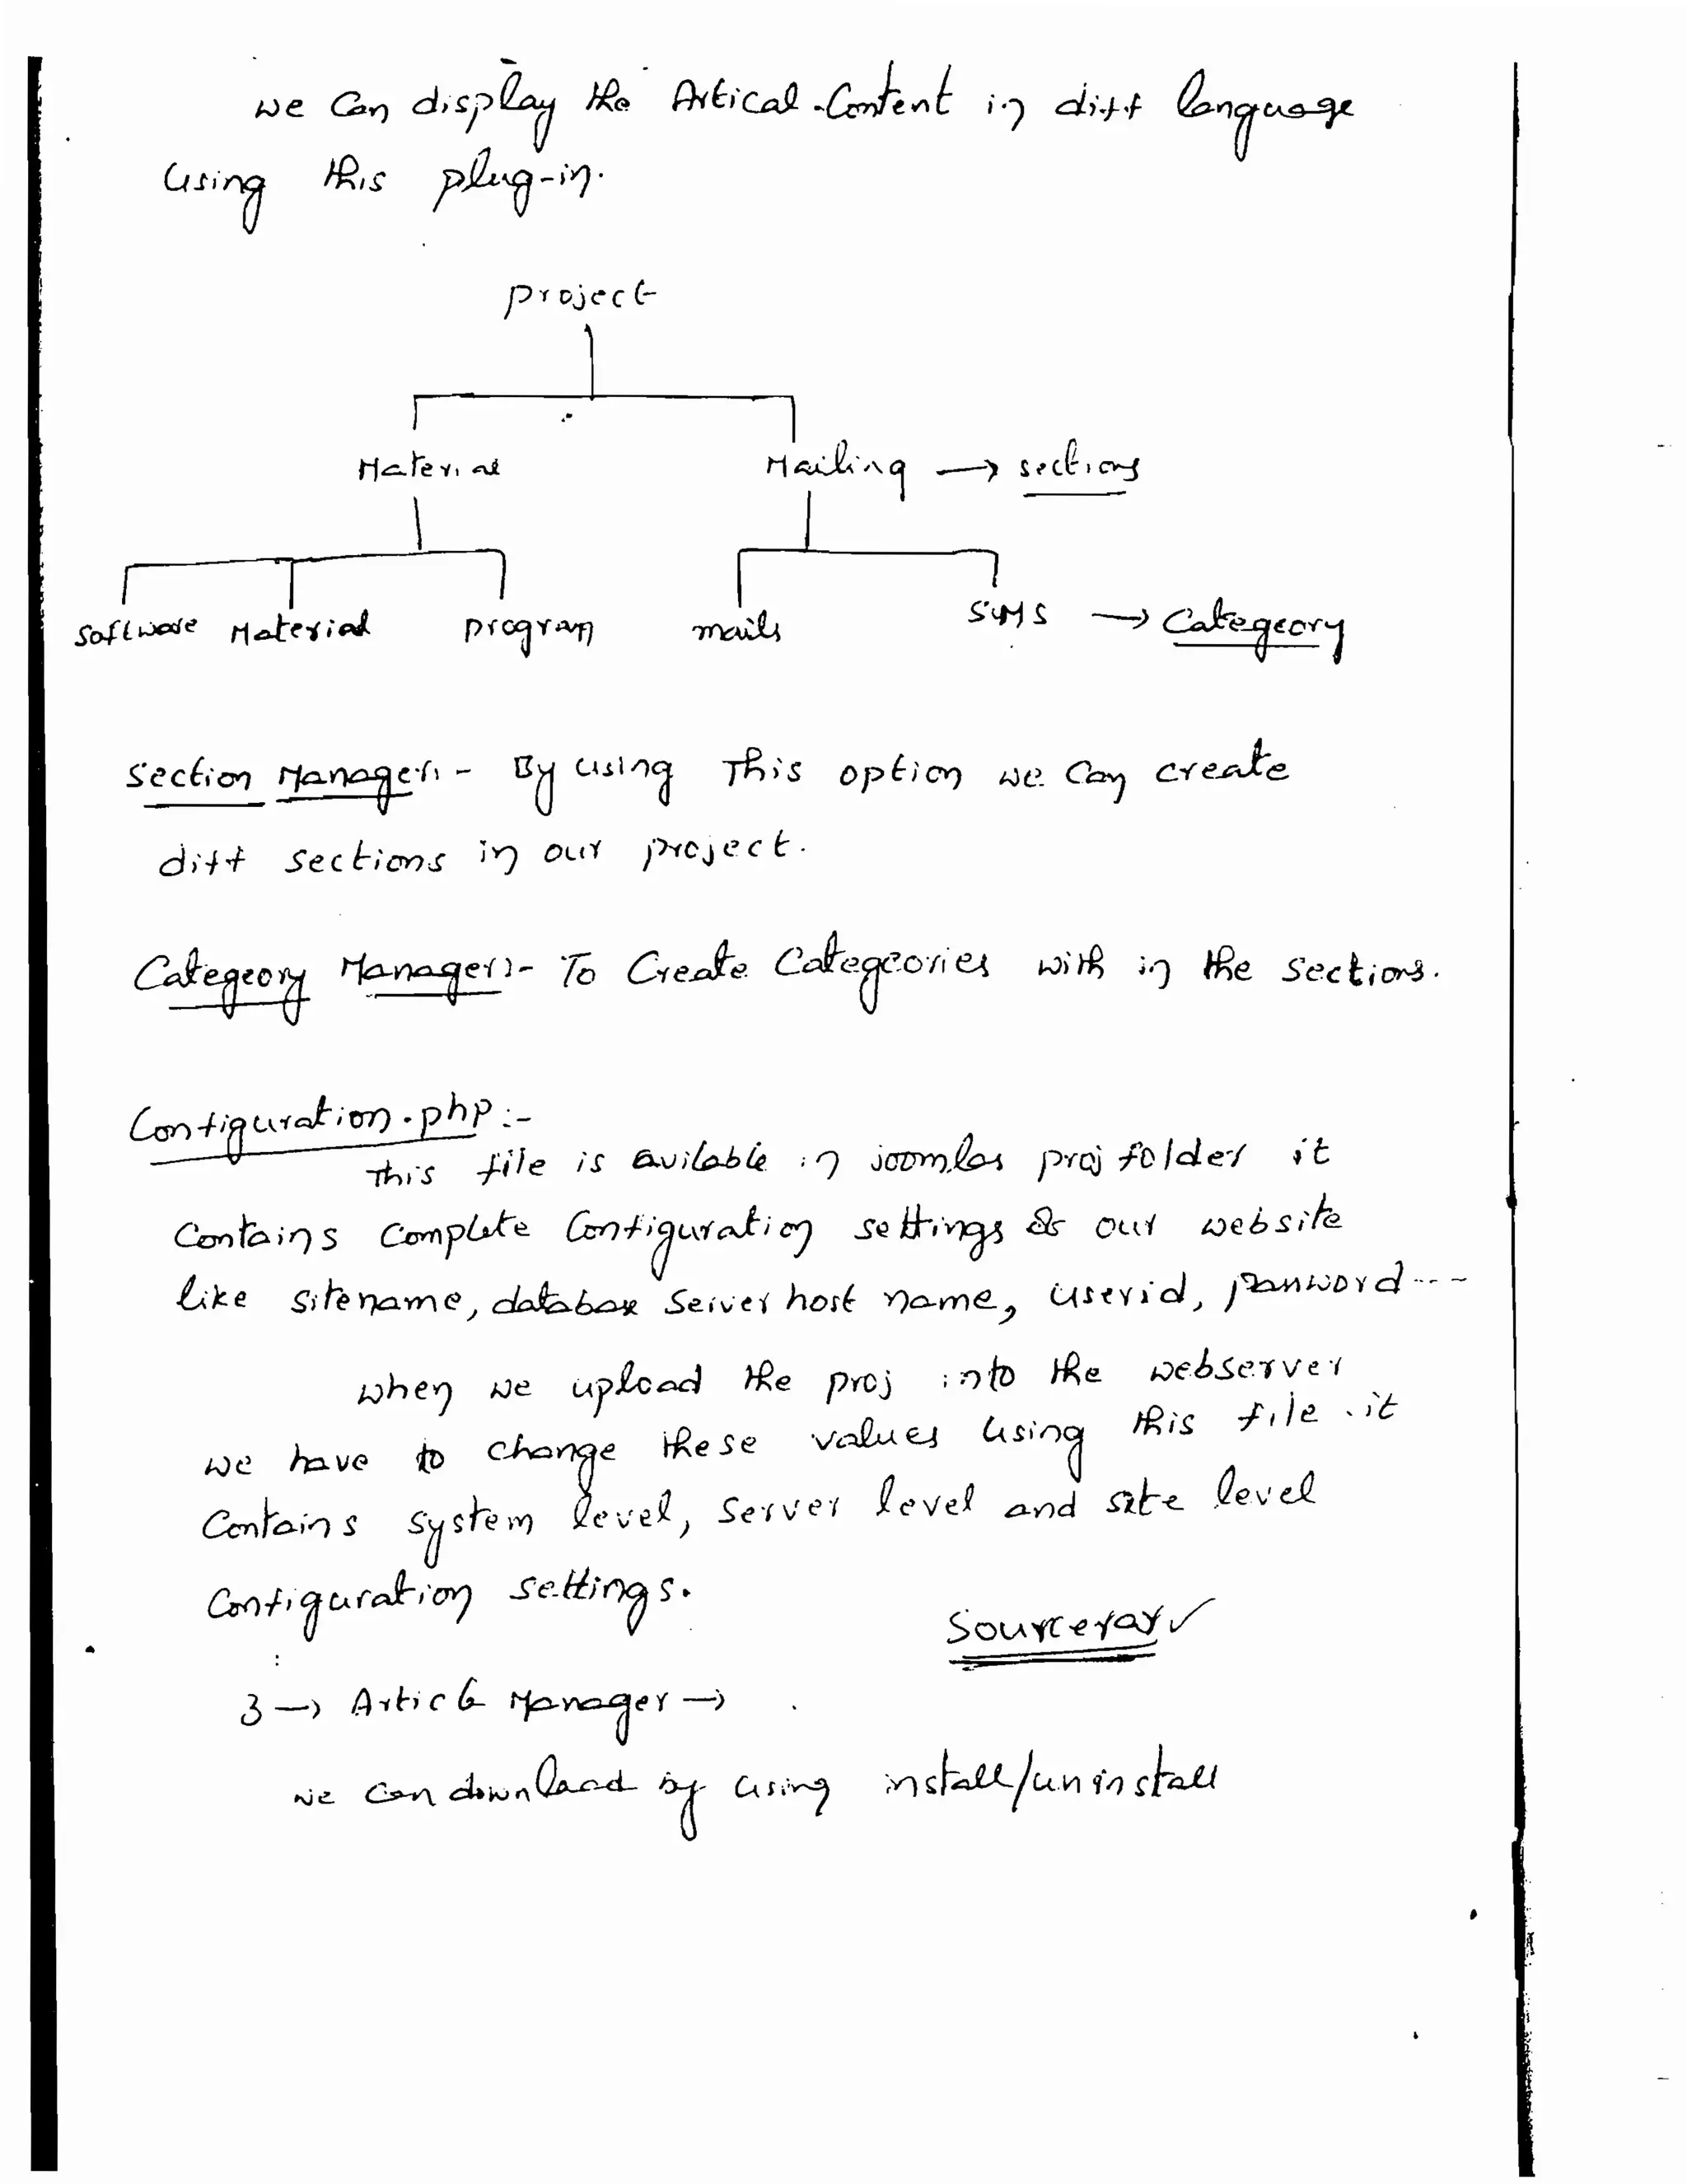 we can display the Artical Content in diff language
using this plug-in.
project
Material Mailing → sections
software Material program mails SMS → Categeory
Section Manager:- By using This option we can create
diff sections in our project.
Categeory Manager:- To Create Categeories with in the sections.
Configuration.php:-
This file is avilable in joomlas proj folder it
Contains Complete Configuration settings our website
like sitename, database Server host name, userid, password ---
when we upload the proj into the webserver
we have to change these values using this file. it
Contains system level, Server level and site level
Configuration settings.
Sourcerar ✓
3 → Article Manager →
we can download by using install/uninstall